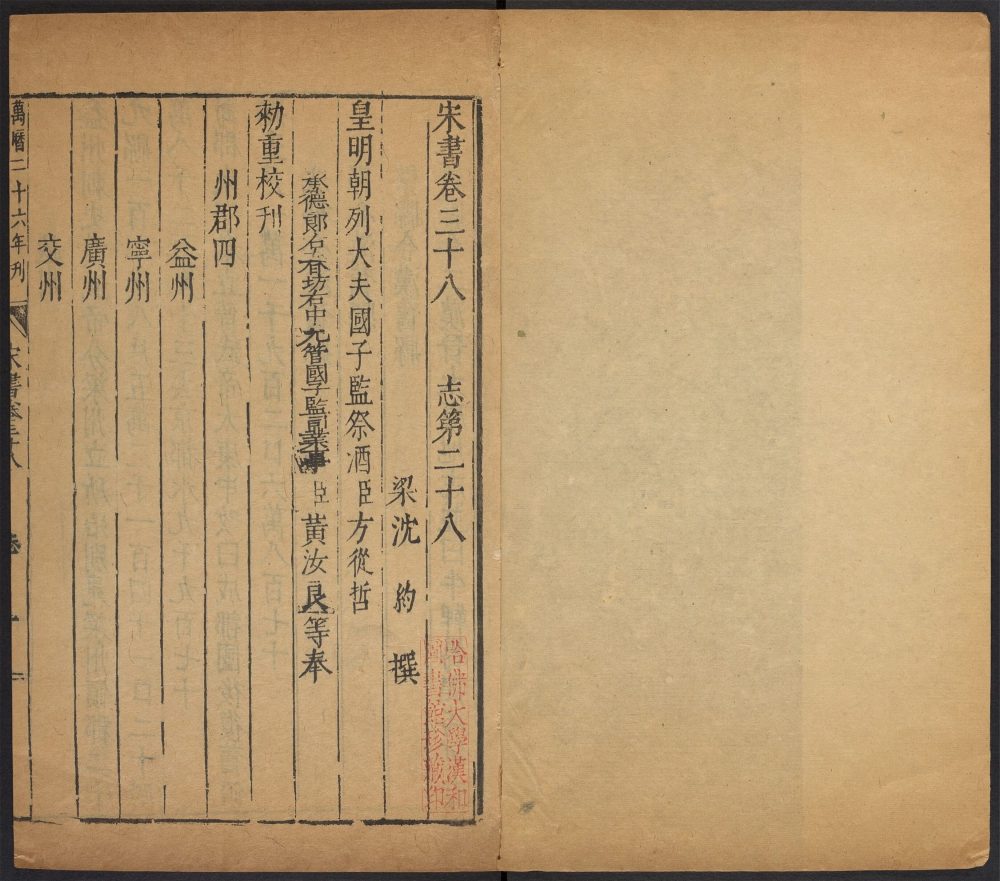 宋書卷三十八 志第二十八
梁沈約撰
皇明朝列大夫國子監祭酒臣方從哲
承德郎右春坊右中允管國子監司業事臣黃汝良等奉
勑重校刊
州郡四
益州
寧州
廣州
交州
萬曆二十六年刊 宋書卷三十八 一
哈佛大學漢和
圖書館珍藏印